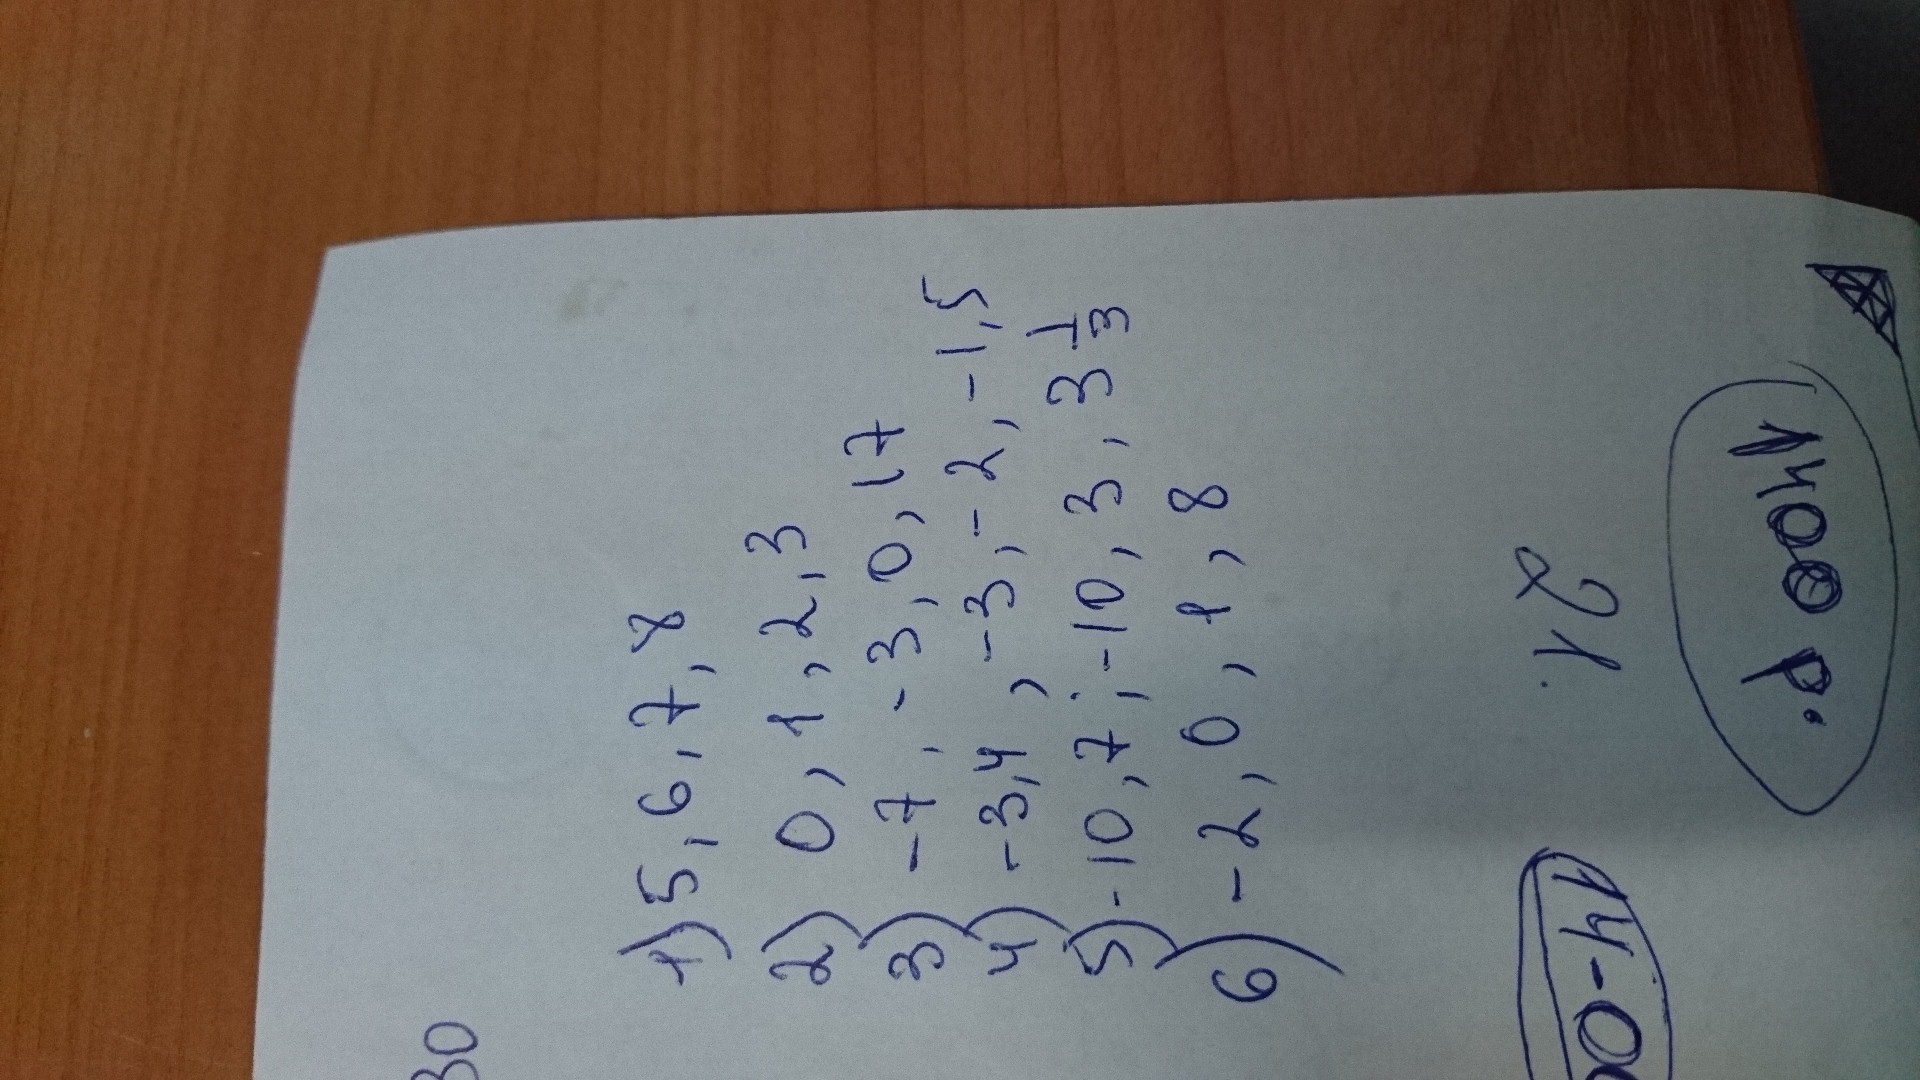 30
1) 5, 6, 7, 8
2) 0, 1, 2, 3
3) -7, -3, 0, 17
4) -3,4, -3, -2, -1,5
5) -10,7; -10, 3, 3 1/3
6) -2, 0, 1, 8
1400 р.